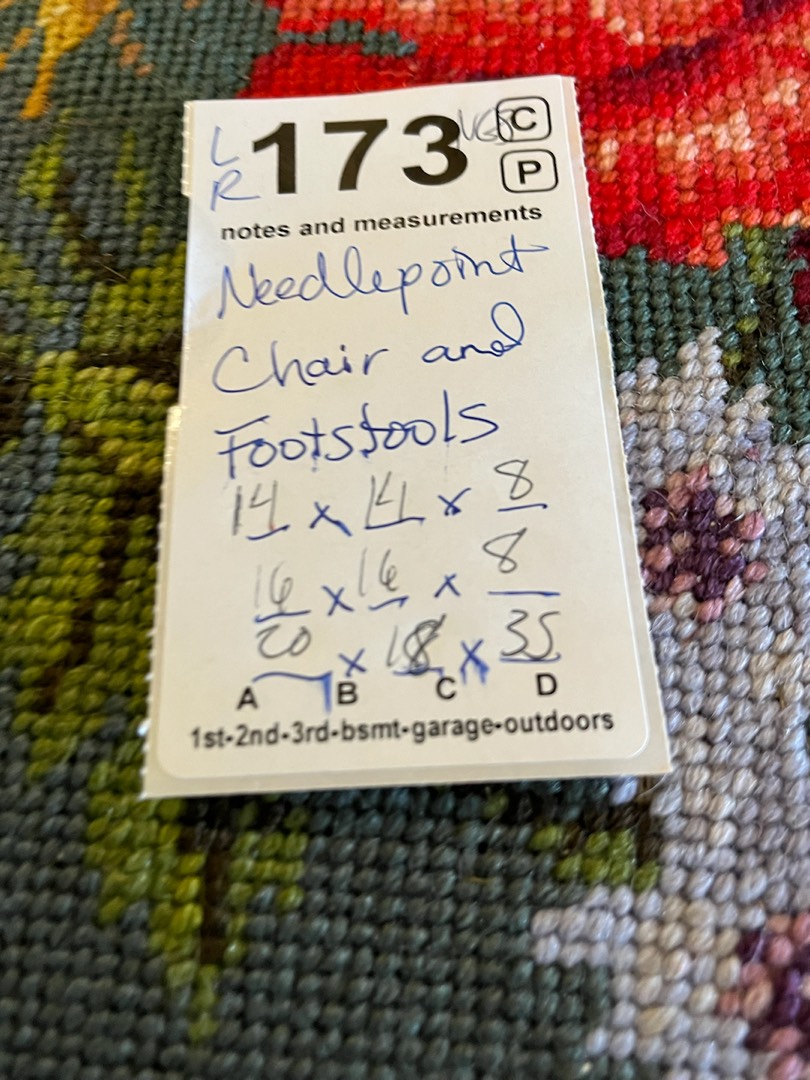 LR 173 C
P
notes and measurements
Needlepoint
Chair and
Footstools
14 x 14 x 8
16 x 16 x 8
20 x 18 x 35
A B C D
1st-2nd-3rd-bsmt-garage-outdoors